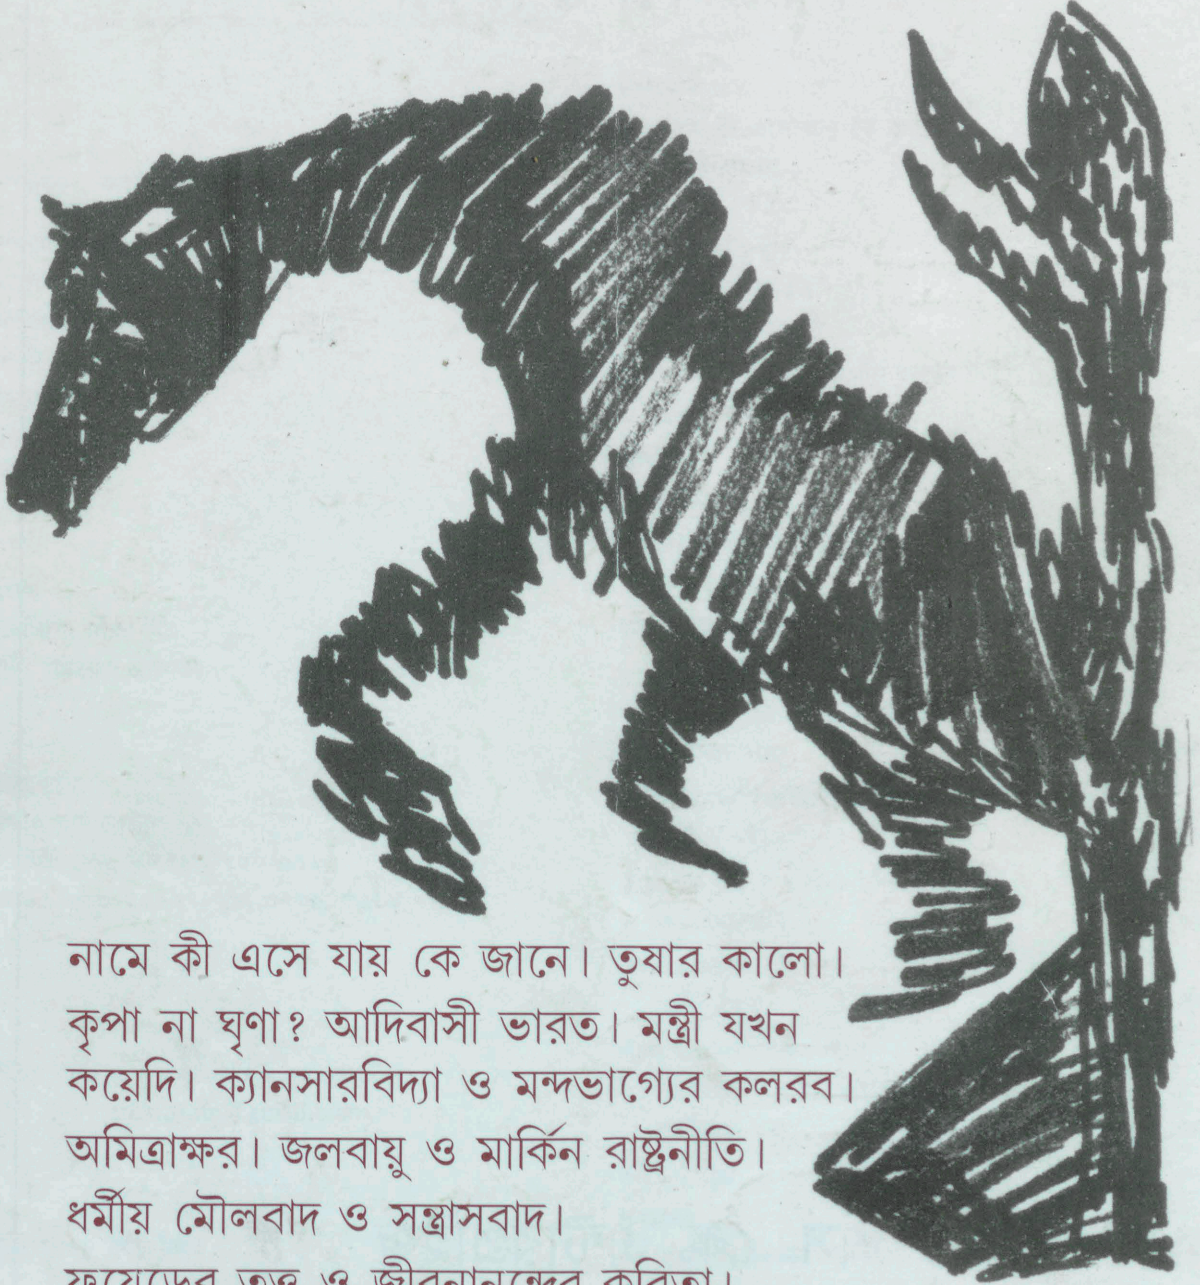 নামে কী এসে যায় কে জানে। তুষার কালো।
কৃপা না ঘৃণা? আদিবাসী ভারত। মন্ত্রী যখন
কয়েদি। ক্যানসারবিদ্যা ও মন্দভাগ্যের কলরব।
অমিত্রাক্ষর। জলবায়ু ও মার্কিন রাষ্ট্রনীতি।
ধর্মীয় মৌলবাদ ও সন্ত্রাসবাদ।
ফ্রয়েডের তত্ত্ব ও জীবনানন্দের কবিতা।